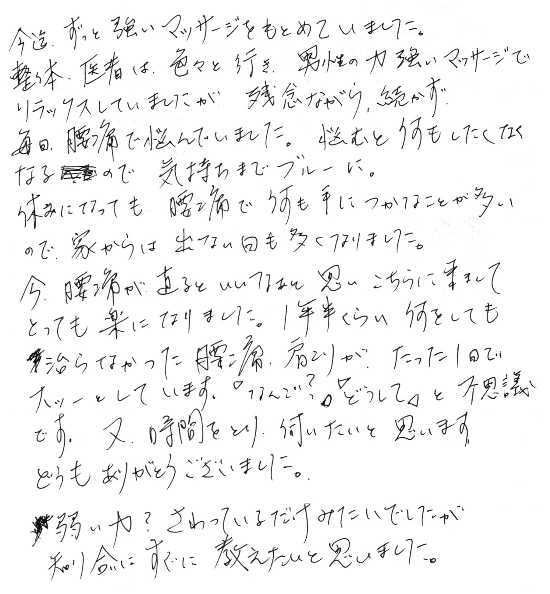 今迄、ずっと強いマッサージをもとめていました。
整体、医者は、色々と行き、男性の力強いマッサージで
リラックスしていましたが 残念ながら、続かず、
毎日、腰痛で悩んでいました。悩むと何もしたくなく
なる ので 気持ちまでブルーに。
休みになっても 腰痛で 何も手につかなことが多い
ので、家からは 出ない日も多くなりました。
今、腰痛が直るといいなあと 思い こちらに来まして
とっても 楽になりました。1年半くらい 何をしても
治らなかった腰痛、肩こりが、たった1日で
スッーとしています。『なんで?』『どうして』と 不思議
です。又、時間をとり、伺いたいと 思います。
どうもありがとうございました。
弱い力?さわっているだけみたいでしたが
知り合いにすぐに 教えたいと思いました。